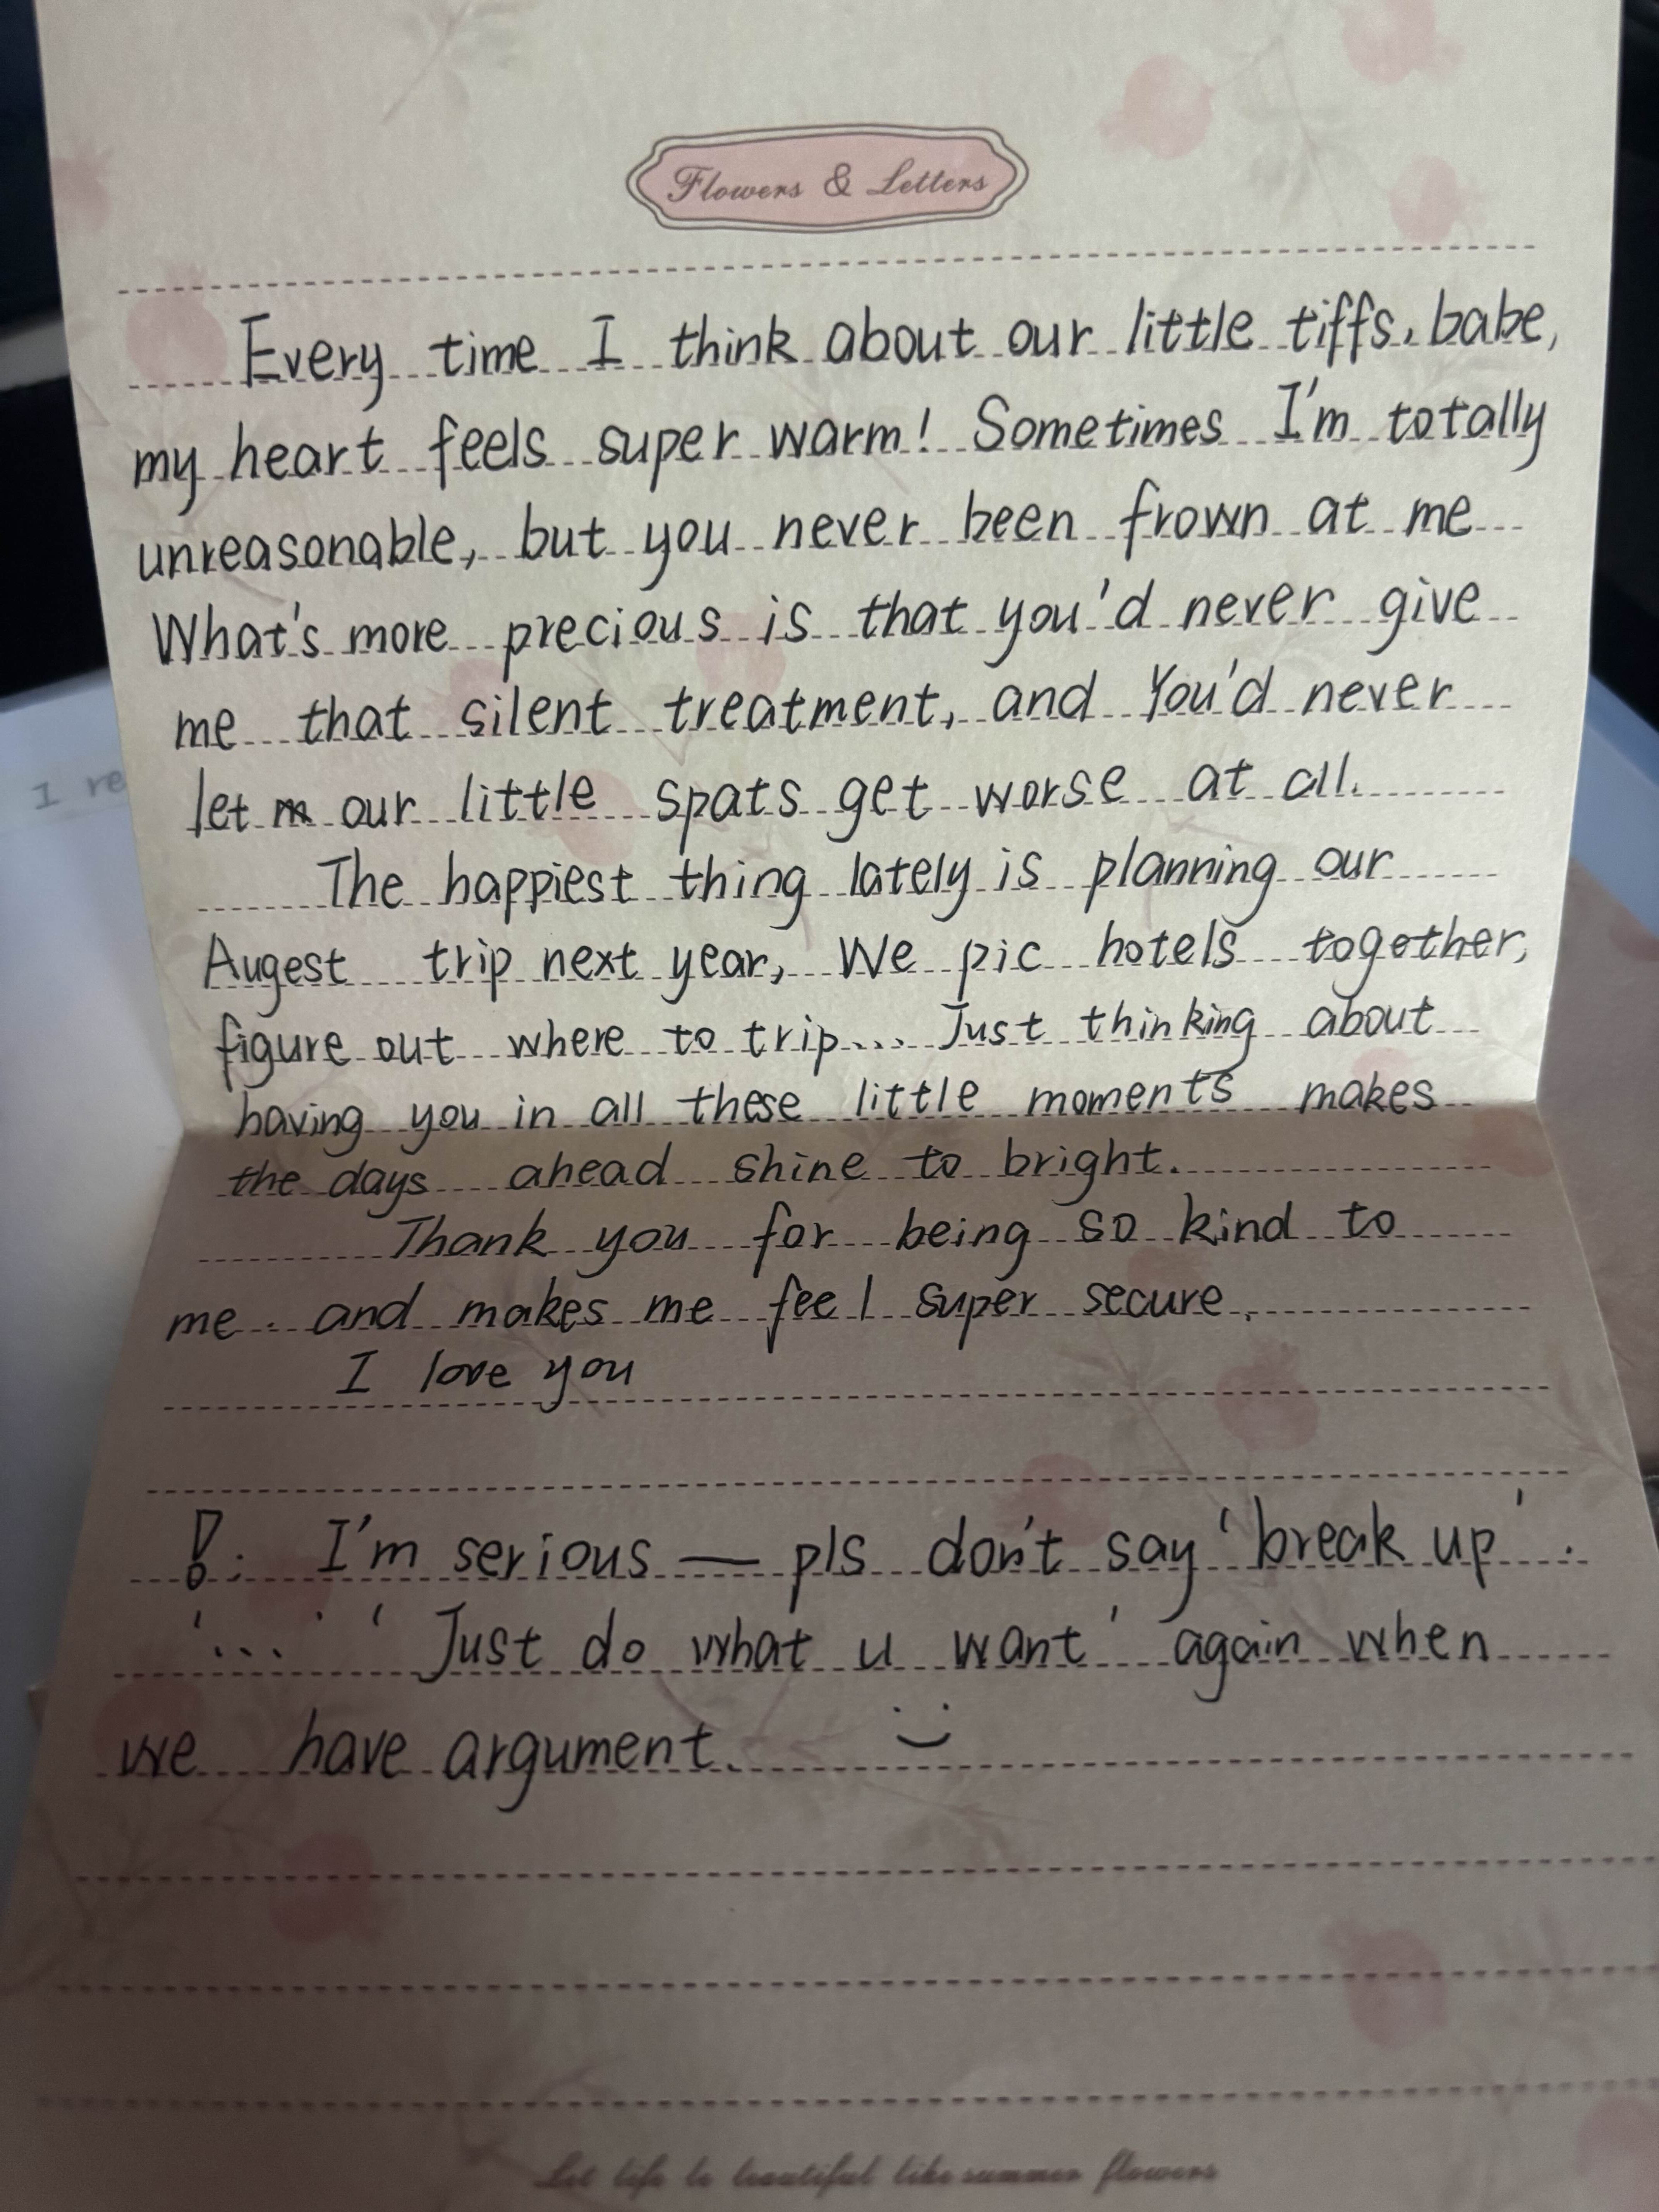 Flowers & Letters
Every time I think about our little tiffs, babe,
my heart feels super warm! Sometimes I'm totally
unreasonable, but you never been frown at me
What's more precious is that you'd never give
me that silent treatment, and You'd never
let our little spats get worse at all.
The happiest thing lately is planning our
Augest trip next year, We pic hotels together,
figure out where to trip... Just thinking about
having you in all these little moments makes
the days ahead shine to bright.
Thank you for being so kind to
me. and makes me feel super secure.
I love you
!: I'm serious — pls don't say 'break up'.
'...' 'Just do what u want' again when
we have argument. :)
Let life be beautiful like summer flowers
I re